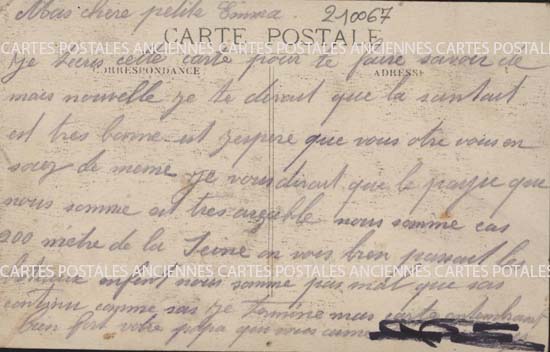 Mais chere petite Emma
210067
CARTE POSTALE
Je vous cette carte pour te faire savoir de
CORRESPONDANCE
ADRESSE
ANCIENNES CARTES POSTALES ANCIENNES CARTES POSTALES
mais nouvelle je te dirait que la santait
est tres bonne est jespere que vous otre vous en
soiez de meme je vous dirait que le payse que
nous somme est tres agreable nous somme cas
200 metre de la Seine on vois bien passait les
bateaux enfint nous somme pas mal que sas
CARTES POSTALES ANCIENNES CARTES POSTALES ANCIENNES
continu comme sas je termine mas carte en
bien fort votre papa que vous aime